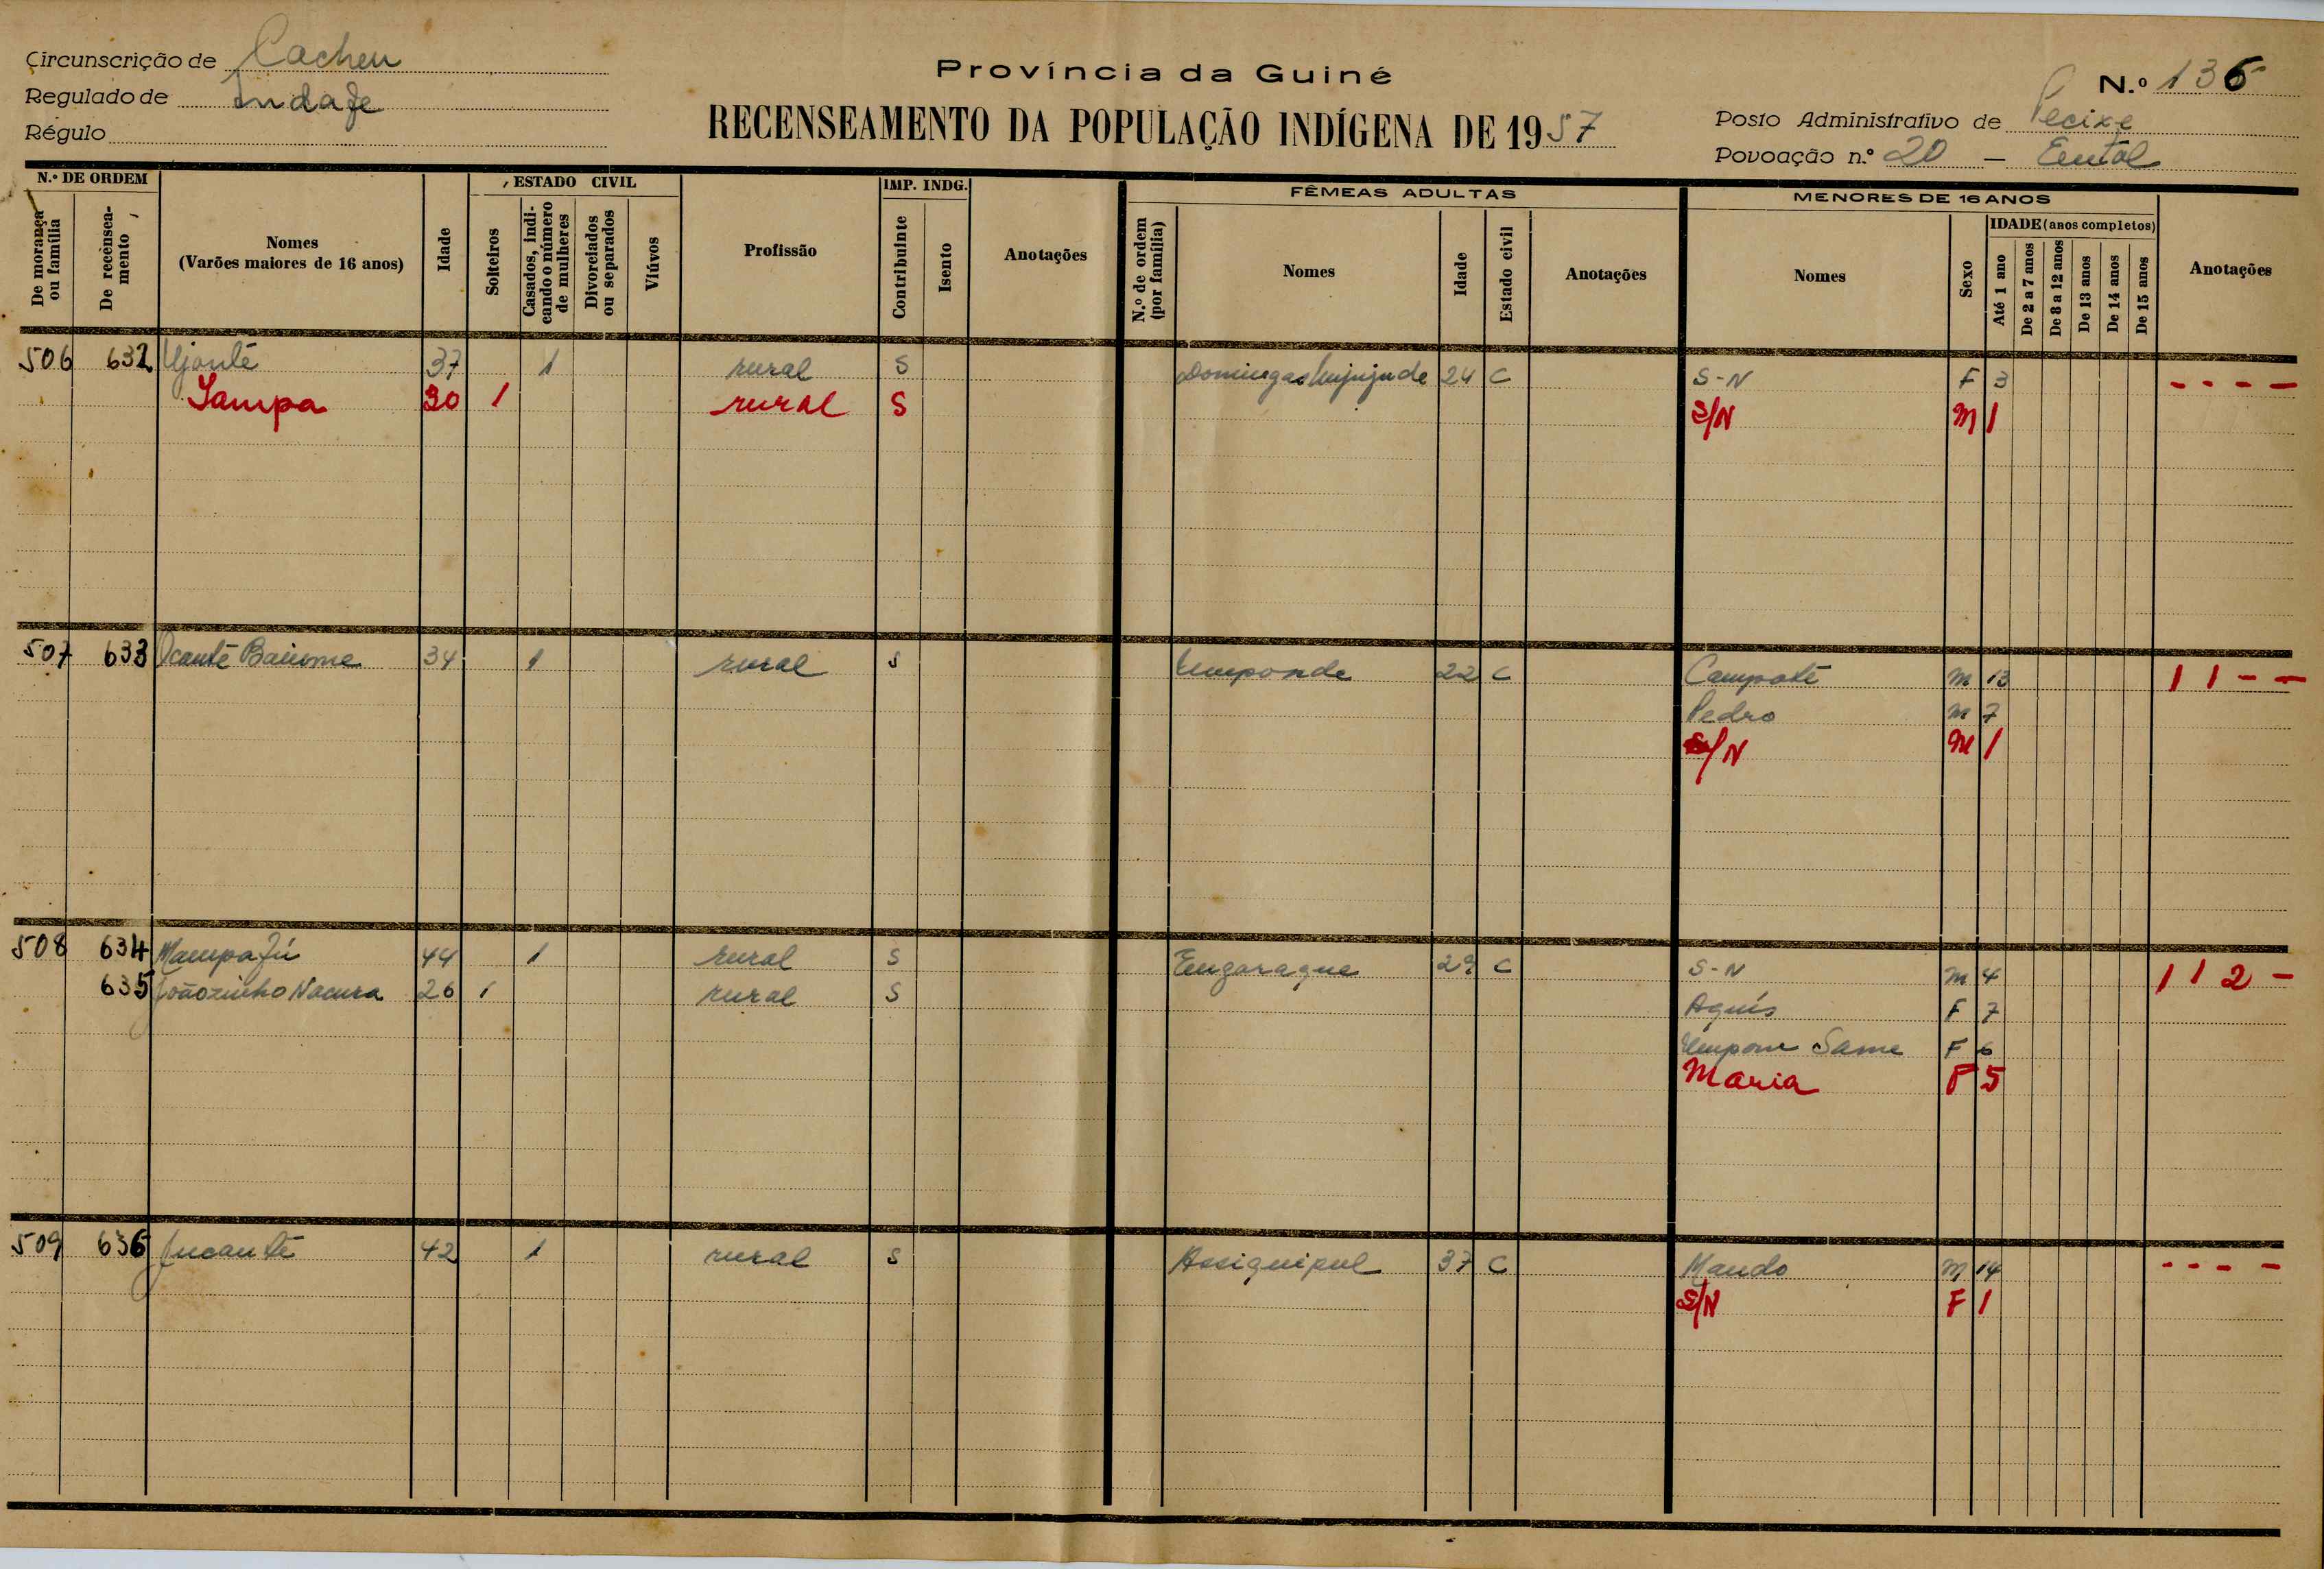 Circunscrição de Cacheu
Regulado de Indafe
Régulo
Província da Guiné
RECENSEAMENTO DA POPULAÇÃO INDÍGENA DE 1957
N.º 136
Posto Administrativo de Pecixe
Povoação n.º 20 -
N.º DE ORDEM
De morança ou família
De recenseamento
Nomes
(Varões maiores de 16 anos)
Idade
ESTADO CIVIL
Solteiros
Casados, indicando o número de mulheres
Divorciados ou separados
Viúvos
Profissão
IMP. INDG.
Contribuinte
Isento
Anotações
FÊMEAS ADULTAS
N.º de ordem (por família)
Nomes
Idade
Estado civil
Anotações
MENORES DE 16 ANOS
Nomes
Sexo
IDADE (anos completos)
Até 1 ano
De 2 a 7 anos
De 8 a 12 anos
De 13 anos
De 14 anos
De 15 anos
Anotações
506 632 Ujonté 37 1 rural S Domingas 24 C S-N F 3 - - - -
Sampa 30 1 rural S S/N M 1
507 633 Ocanté Baiome 34 1 rural S Umponde 22 C Campoté M 13 1 1 - -
Pedro M 7
S/N M 1
508 634 Mampafú 44 1 rural S Engaraque 29 C S-N M 4 1 1 2 -
635 Joãozinho Nacura 26 1 rural S Aguís F 7
Umpom Same F 6
Maria F 5
509 636 Jucanté 42 1 rural S Assiguipul 37 C Mando M 14 - - - -
S/N F 1